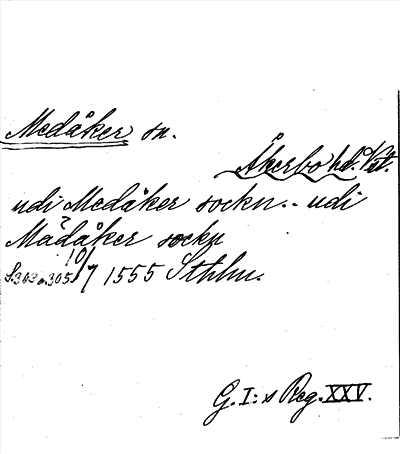 Medåker sn.
Åkerbo hd. Vst.
udi Medåker sockn. - udi
Mådåker sockn
S. 303 o. 305. 10/7 1555 Sthlm.
G. I:s Reg. XXV.